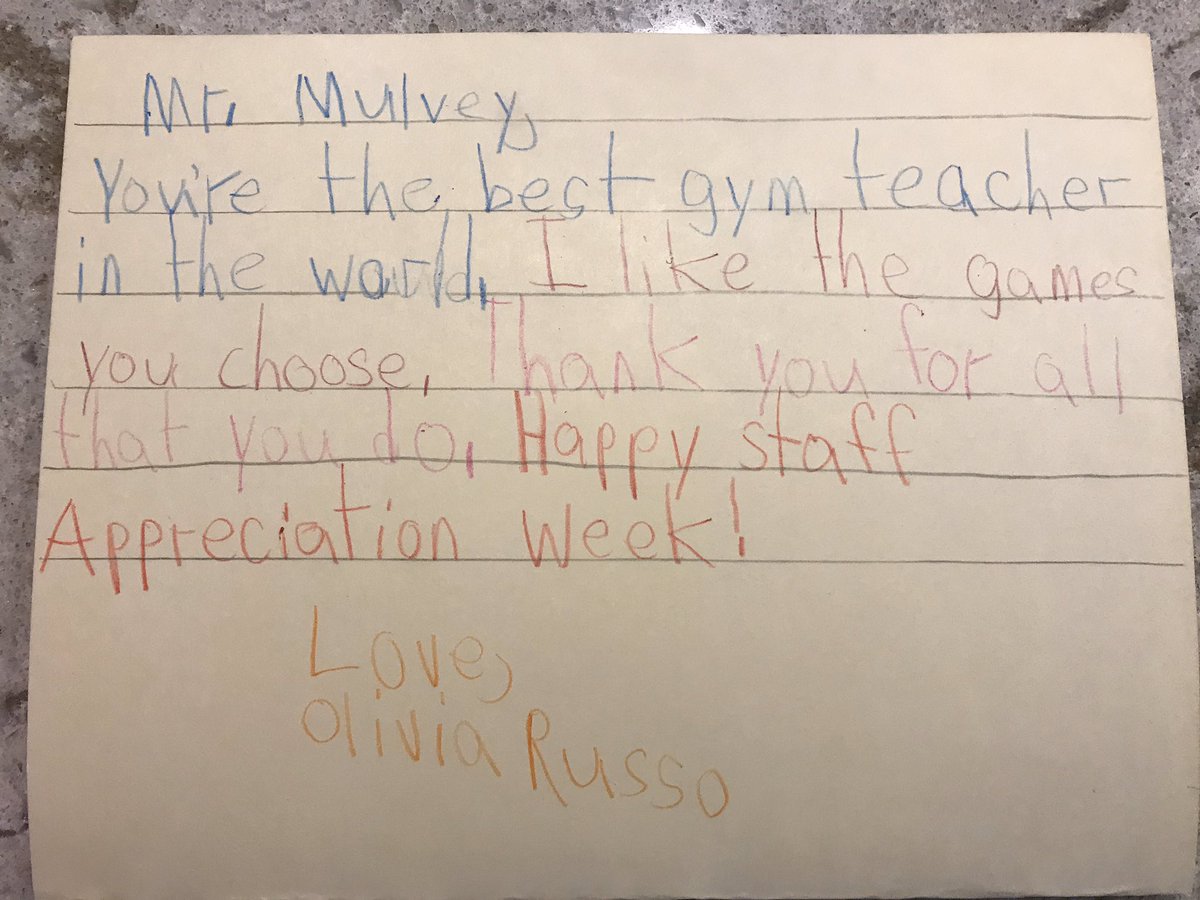 Mr. Mulvey,
You're the best gym teacher
in the world. I like the games
you choose. Thank you for all
that you do. Happy staff
Appreciation Week!
Love,
Olivia Russo